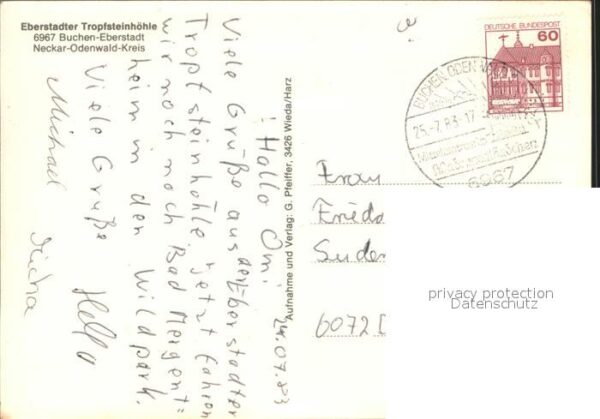 Eberstadter Tropfsteinhöhle
6967 Buchen-Eberstadt
Neckar-Odenwald-Kreis
24.07.83
Hallo Omi!
Viele Grüße aus der Eberstadter
Tropfsteinhöhle. Jetzt fahren
wir noch nach Bad Mergent=
heim in den Wildpark.
Viele Grüße
Michael
Aufnahme und Verlag: G. Pfeiffer, 3426 Wieda/Harz
DEUTSCHE BUNDESPOST
60
BUCHEN, ODENWALD
25.-7.83-17
6967
Frau
6072
privacy protection
Datenschutz